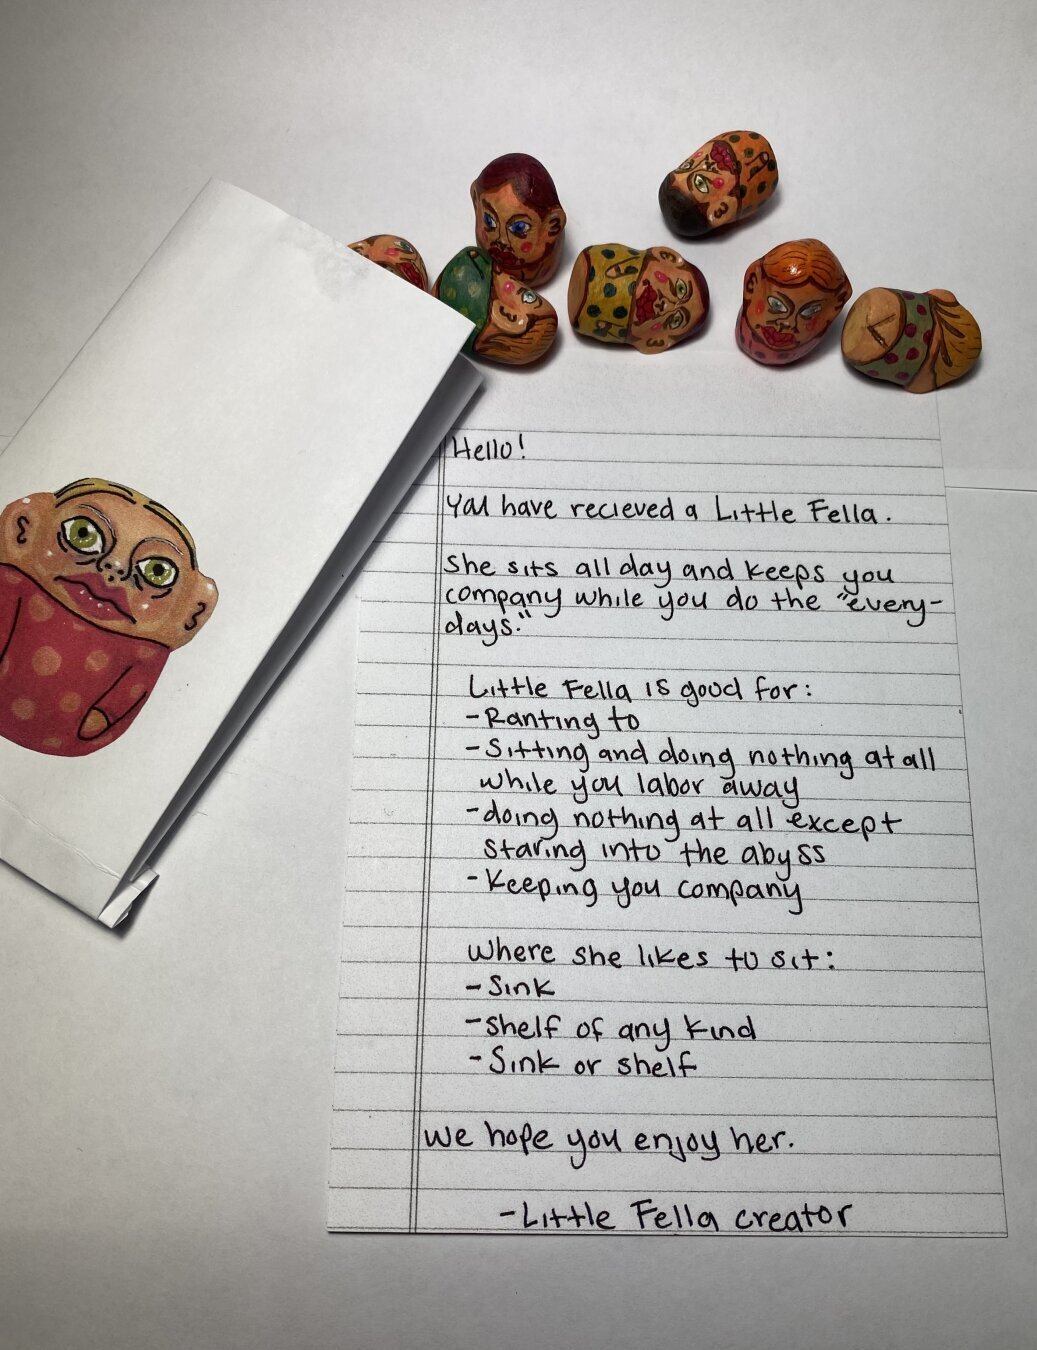 Hello!
You have recieved a Little Fella.
She sits all day and keeps you
company while you do the "every-
days."
Little Fella is good for:
-Ranting to
-Sitting and doing nothing at all
while you labor away
-doing nothing at all except
staring into the abyss
-Keeping you company
Where she likes to sit:
-Sink
-shelf of any kind
-Sink or shelf
We hope you enjoy her.
-Little Fella creator